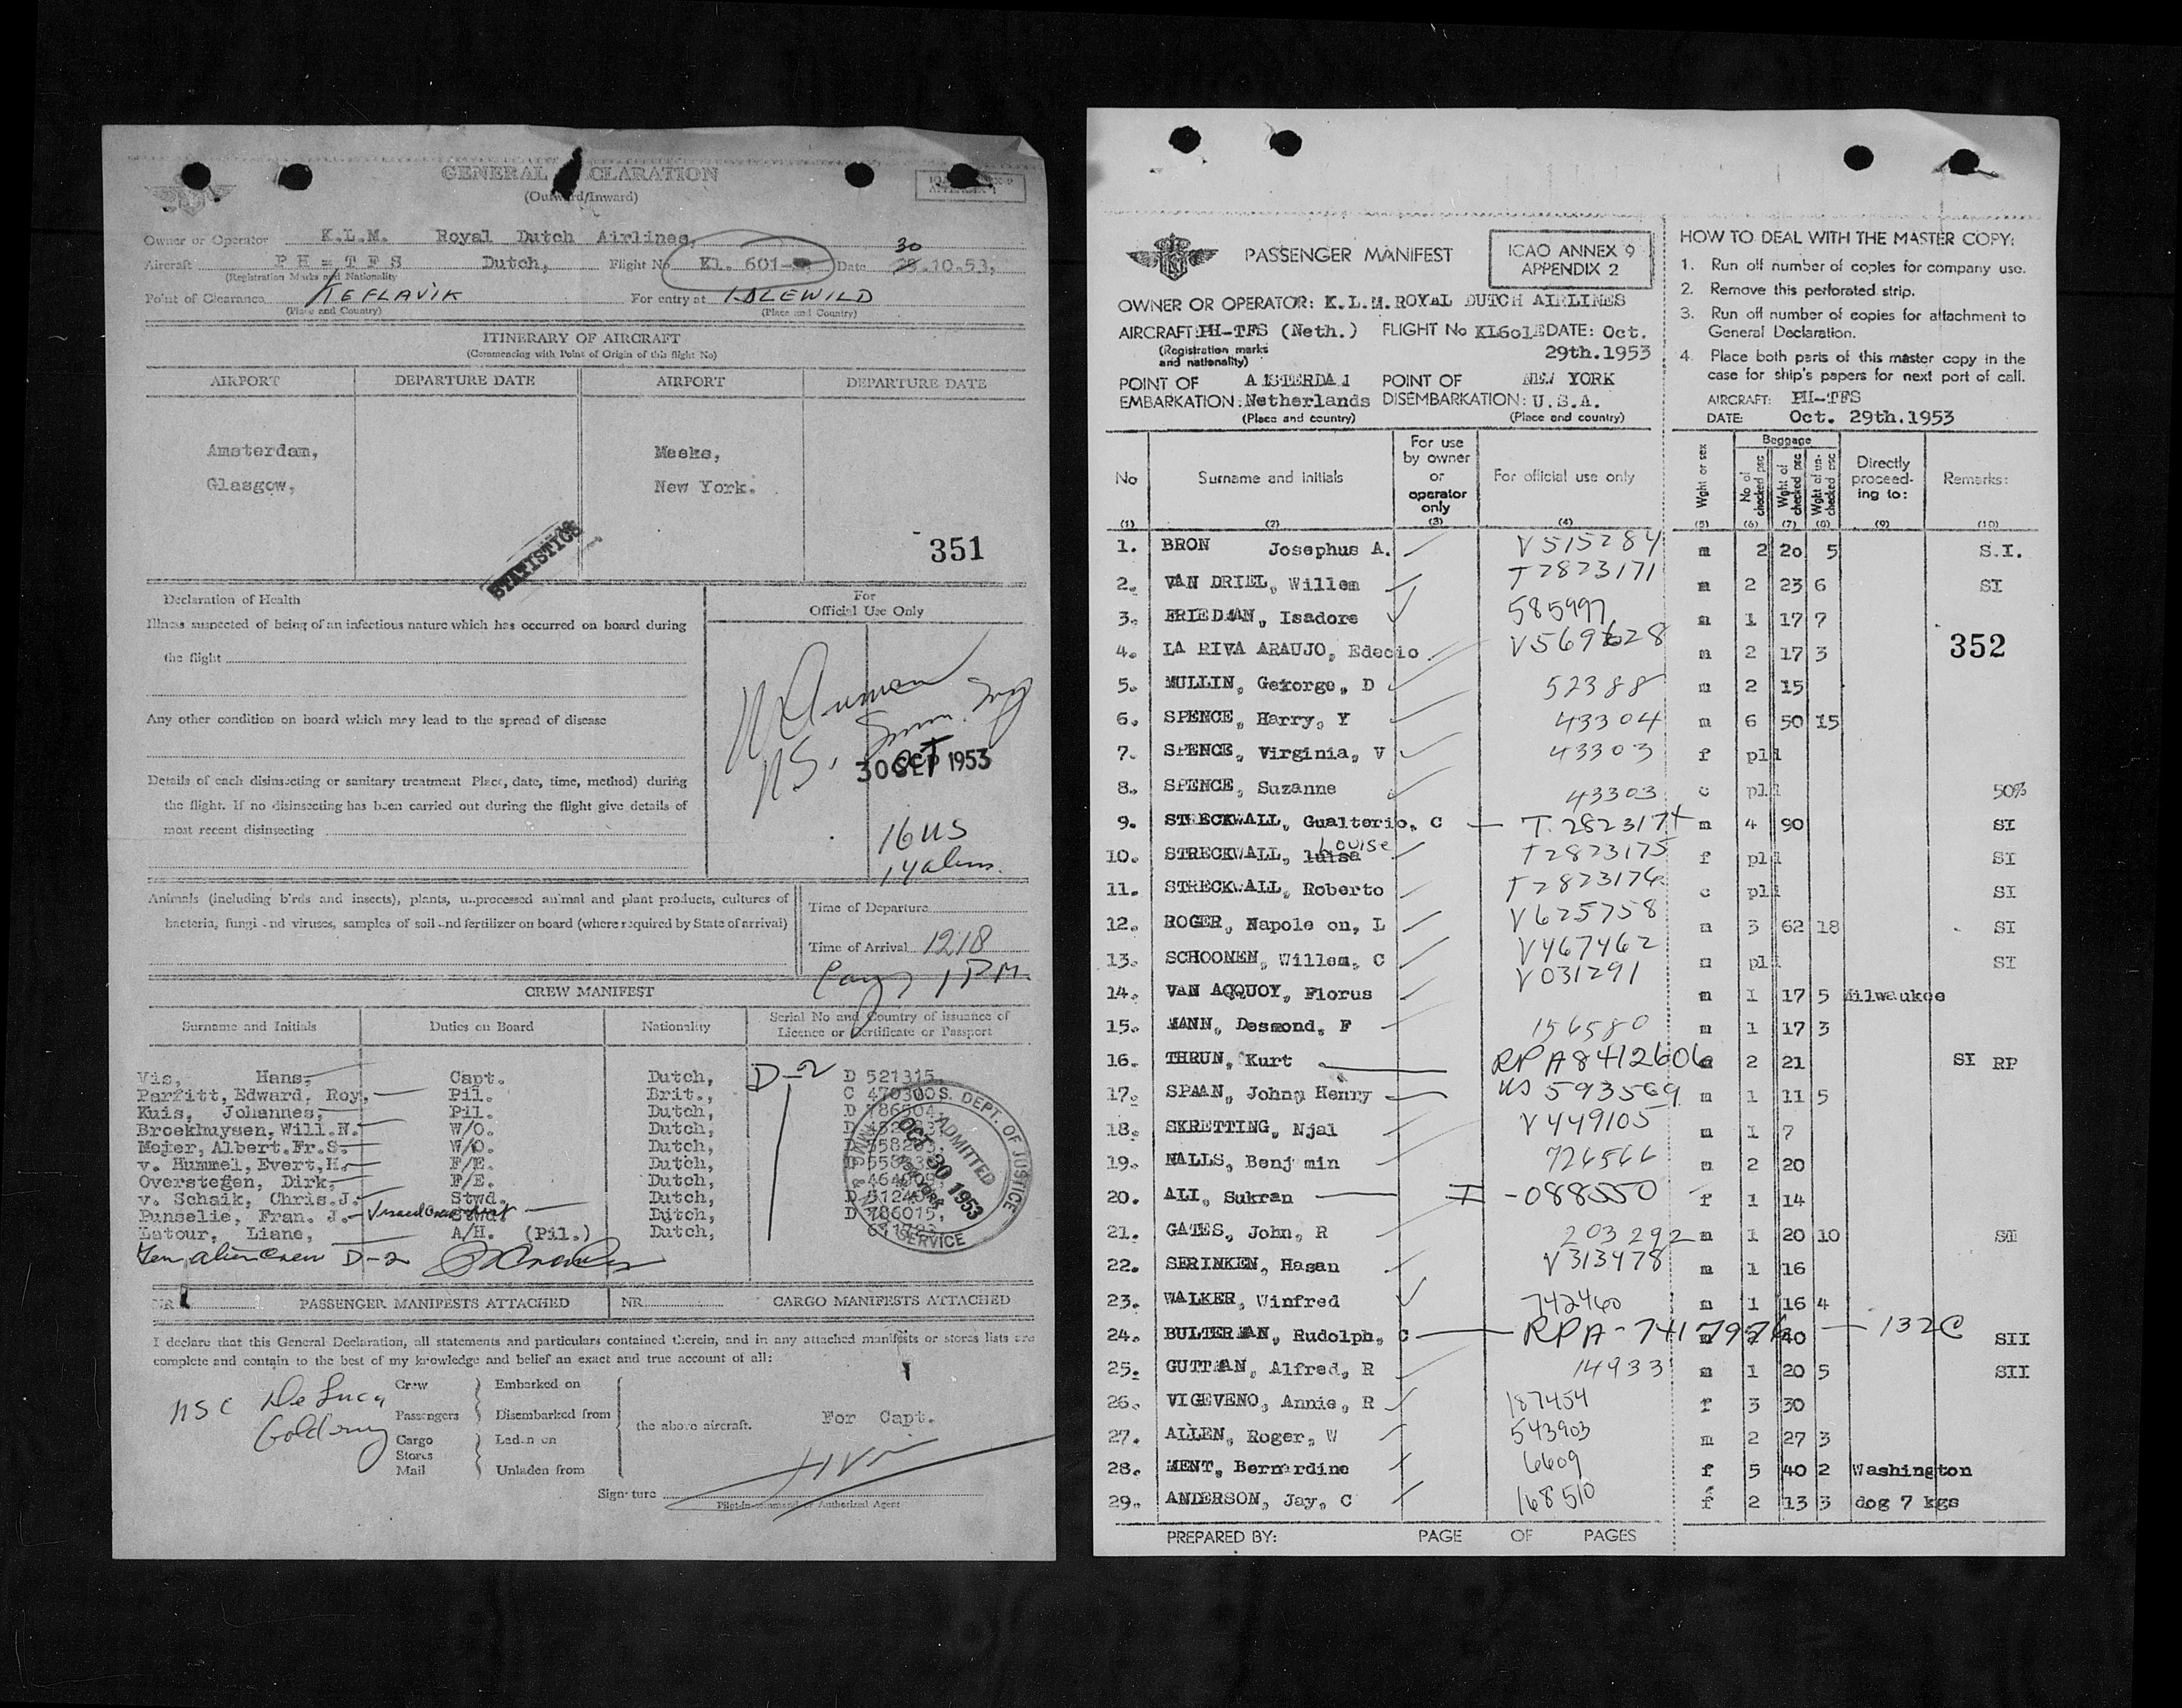 GENERAL CLARATION
(Outward/Inward)
Owner or Operator K.L.M. Royal Dutch Airlines,
30
Aircraft PH-TFS Dutch, Flight No Kl. 601- Date .10.53,
(Registration Marks and Nationality
Point of Clearance KEFLAVIK For entry at IDLEWILD
(Place and Country) (Place and Country)
ITINERARY OF AIRCRAFT
(Commencing with Point of Origin of this flight No)
AIRPORT DEPARTURE DATE AIRPORT DEPARTURE DATE
Amsterdam, Meeks,
Glasgow, New York.
STATISTICS
351
Declaration of Health
For
Official Use Only
Illness suspected of being of an infectious nature which has occurred on board during
the flight
Any other condition on board which may lead to the spread of disease
30 OCT 1953
Details of each disinsecting or sanitary treatment Place, date, time, method) during
the flight. If no disinsecting has been carried out during the flight give details of
most recent disinsecting
16 US
14 aliens.
Animals (including birds and insects), plants, unprocessed animal and plant products, cultures of
bacteria, fungi and viruses, samples of soil and fertilizer on board (where required by State of arrival)
Time of Departure
Time of Arrival 1218
1 PM
CREW MANIFEST
Surname and Initials Duties on Board Nationality Serial No and Country of issuance of
Licence or Certificate or Passport
Vis, Hans, Capt. Dutch, D-2 D 521315,
Parfitt, Edward, Roy, Pil. Brit., C 470300
Kuis, Johannes, Pil. Dutch, D 786504,
Broekhuysen, Will.N. W/O. Dutch,
Meijer, Albert.Fr.S. W/O. Dutch,
v. Hummel, Evert,H. F/E. Dutch,
Overstegen, Dirk, F/E. Dutch,
v. Schaik, Chris.J. Stwd. Dutch,
Punselie, Fran. J. Stwd. Dutch, D 786015,
Latour, Liane, A/H. (Pil.) Dutch,
Ten alien crew D-2
U.S. DEPT. OF JUSTICE
ADMITTED
OCT 30 1953
NEW YORK
SERVICE
NR PASSENGER MANIFESTS ATTACHED NR CARGO MANIFESTS ATTACHED
I declare that this General Declaration, all statements and particulars contained therein, and in any attached manifests or stores lists are
complete and contain to the best of my knowledge and belief an exact and true account of all:
NSC De Luca
Crew Embarked on
Passengers Disembarked from
the above aircraft. For Capt.
Cargo Laden on
Stores
Mail Unladen from
Signature
Pilot-in-command or Authorized Agent
PASSENGER MANIFEST
ICAO ANNEX 9
APPENDIX 2
OWNER OR OPERATOR: K.L.M. ROYAL DUTCH AIRLINES
AIRCRAFT: PH-TFS (Neth.) FLIGHT No KL601E DATE: Oct.
(Registration marks
and nationality)
29th.1953
POINT OF EMBARKATION: AMSTERDAM Netherlands
POINT OF DISEMBARKATION: NEW YORK U.S.A.
(Place and country) (Place and country)
HOW TO DEAL WITH THE MASTER COPY:
1. Run off number of copies for company use.
2. Remove this perforated strip.
3. Run off number of copies for attachment to
General Declaration.
4. Place both parts of this master copy in the
case for ship's papers for next port of call.
AIRCRAFT: PH-TFS
DATE: Oct. 29th.1953
No Surname and initials For use by owner or operator only For official use only Wght or sex Baggage No of checked psc Wght of checked psc Wght of un-checked psc Directly proceed-ing to: Remarks:
(1) (2) (3) (4) (5) (6) (7) (8) (9) (10)
1. BRON Josephus A. V515284 m 2 20 5 S.I.
2. VAN DRIEL, Willem T2823171 m 2 23 6 SI
3. FRIEDMAN, Isadore 585997 m 1 17 7
4. LA RIVA ARAUJO, Edecio V569628 m 2 17 3
352
5. MULLIN, Gexorge, D 52388 m 2 15
6. SPENCE, Harry, Y 43304 m 6 50 15
7. SPENCE, Virginia, V 43303 f pll
8. SPENCE, Suzanne 43303 c pll 50%
9. STRECKWALL, Gualterio, C T.2823174 m 4 90 SI
10. STRECKWALL, luisa Louise T2823175 f pll SI
11. STRECKWALL, Roberto T2823176 c pll SI
12. ROGER, Napole on, L V625758 m 3 62 18 SI
13. SCHOONEN, Willem, C V467462 m pll SI
14. VAN ACQUOY, Florus V031291 m 1 17 5 Milwaukee
15. MANN, Desmond, F 156580 m 1 17 3
16. THRUN, Kurt RPA8412606 2 21 SI RP
17. SPAAN, Johnn Henry US 593569 m 1 11 5
18. SKRETTING, Njal V449105 m 1 7
19. NALLS, Benj min 726566 m 2 20
20. ALI, Sukran I-088550 f 1 14
21. GATES, John, R 203292 m 1 20 10 SI
22. SERINKEN, Hasan V313478 m 1 16
23. WALKER, Winfred 742460 m 1 16 4
24. BULTERMAN, Rudolph, C RPA-7417976 40 132C SII
25. GUTTMAN, Alfred, R 14933 m 1 20 5 SII
26. VIGEVENO, Annie, R 187454 f 3 30
27. ALLEN, Roger, W 543903 m 2 27 3
28. MENT, Bernardine 6609 f 5 40 2 Washington
29. ANDERSON, Jay, C 168510 f 2 13 3 dog 7 kgs
PREPARED BY: PAGE OF PAGES